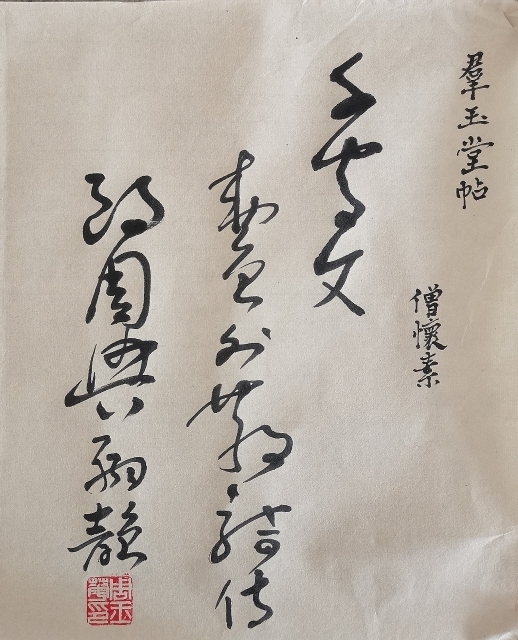 羣玉堂帖
僧懷素
千字文
勅員外散騎侍
郎周興嗣韻